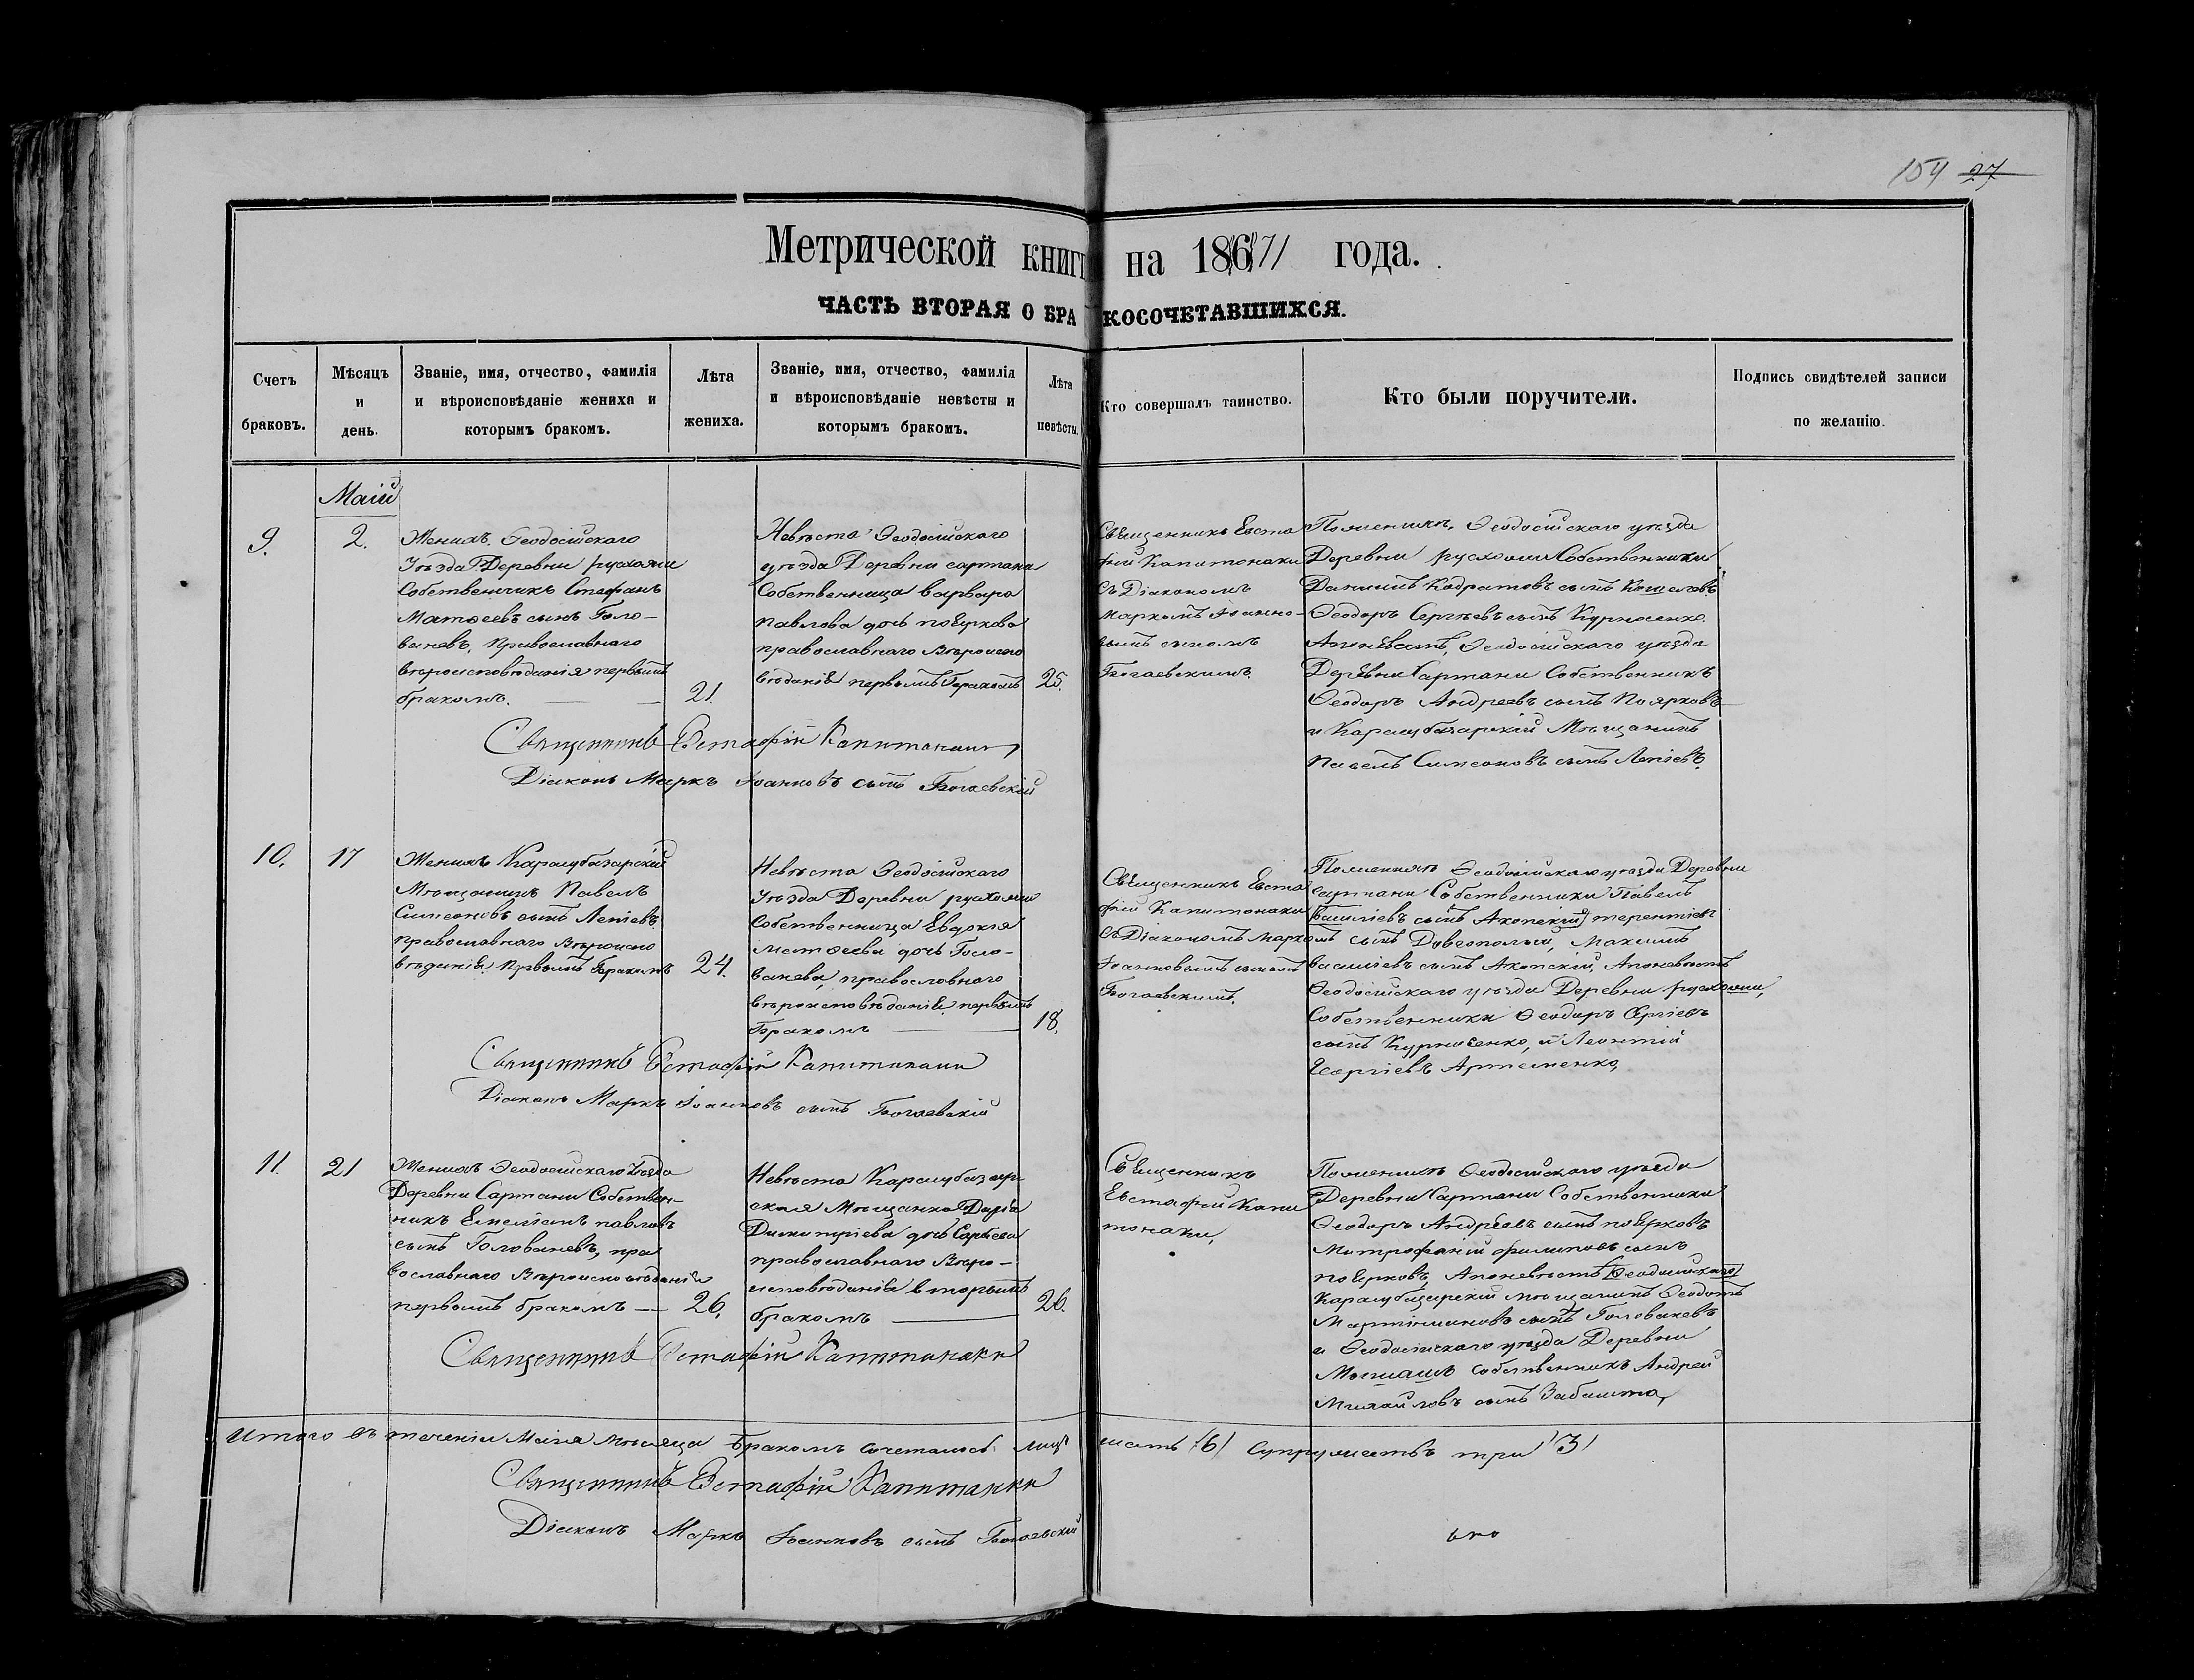 154 27
Метрической книги на 1871 года.
ЧАСТЬ ВТОРАЯ О БРАКОСОЧЕТАВШИХСЯ.
Счетъ
браковъ.
Мѣсяцъ
и
день.
Званіе, имя, отчество, фамилія
и вѣроисповѣданіе жениха и
которымъ бракомъ.
Лѣта
жениха.
Званіе, имя, отчество, фамилія
и вѣроисповѣданіе невѣсты и
которымъ бракомъ.
Лѣта
невѣсты.
Кто совершалъ таинство.
Кто были поручители.
Подпись свидѣтелей записи
по желанію.
Маій
9.
2.
Женихъ Ѳеодосійскаго
Уѣзда Деревни
Собственникъ Стефанъ
Матѳеевъ сынъ Голо-
ваневъ, Православнаго
вѣроисповѣданія первымъ
бракомъ.
21.
Невѣста Ѳеодосійскаго
уѣзда Деревни сартана
Собственница варвара
Павлова дочь поЕркова
православнаго Вѣроиспо
вѣданіе первымъ Бракомъ
25.
Священникъ Евста
фій Капитонаки
съ Діакономъ
Маркомъ Іоанно-
вымъ сыномъ
Богаевскимъ.
Поженихѣ, Ѳеодосійскаго уѣзда
Деревни Собственники
Даніилъ Кодратовъ сынъ Кошелевъ
Ѳеодоръ Сергѣевъ сынъ Курносенко.
Апоневѣстѣ, Ѳеодосійскаго уѣзда
Деревни Сартани Собственникъ
Ѳеодоръ Андреевъ сынъ Поярковъ
и Карасубазарскій Мѣщанинъ
Павелъ Симеоновъ сынъ
Священникъ Евстафій Капитонаки
Діаконъ Маркъ Іоанновъ сынъ Богаевскій
10.
17
Женихъ Карасубазарскій
Мѣщанинъ Павелъ
Симеоновъ сынъ
православнаго Вѣроиспо
вѣданіе, Первымъ Бракомъ
24.
Невѣста Ѳеодосійскаго
Уѣзда Деревни
Собственница Евдокія
Матѳеева дочь Голо-
ванева, православнаго
вѣроисповѣданіе, первымъ
Бракомъ
18.
Священникъ Евста
фій Капитонаки
съ Діакономъ Маркомъ
Іоанновымъ сыномъ
Богаевскимъ.
Поженихѣ Ѳеодосійскаго уѣзда Деревни
Сартани Собственники Павелъ
Василіевъ сынъ терентіевъ
сынъ Максимъ
василіевъ сынъ Апоневѣстѣ
Ѳеодосійскаго уѣзда Деревни
Собственники Ѳеодоръ Сергіевъ
сынъ Курносенко, и Леонтій
Георгіевъ Артеменко,
Священникъ Евстафій Капитонаки
Діаконъ Маркъ Іоанновъ сынъ Богаевскій
11.
21
Женихъ Ѳеодосійскаго Уѣзда
Деревни Сартани Собствен-
никъ Емеліанъ павловъ
сынъ Голованевъ, пра
вославнаго Вѣроисповѣданія
первымъ бракомъ
26.
Невѣста Карасубазар-
ская Мѣщанка Дарія
Димитріева дочь
православнаго Вѣро-
исповѣданіе вторымъ
бракомъ
26.
Священникъ
Евстафій Капи
тонаки,
Поженихѣ Ѳеодосійскаго уѣзда
Деревни Сартани Собственники
Ѳеодоръ Андреевъ сынъ поЕрковъ
Митрофаній филиповъ сынъ
поЕрковъ, Апоневѣстѣ Ѳеодосійскаго
Карасубазарскій мѣщанинъ Ѳеодотъ
сынъ Голованевъ
и Ѳеодосійскаго уѣзда Деревни
собственникъ Андрей
Михайловъ сынъ Забашта,
Священникъ Евстафій Капитонаки
Итого въ теченіи Маія мѣсяца Бракомъ сочеталось лицъ шесть /6/ Супружествъ три /3/
Священникъ Евстафій Капитонаки
Діаконъ Маркъ Іоанновъ сынъ Богаевскій